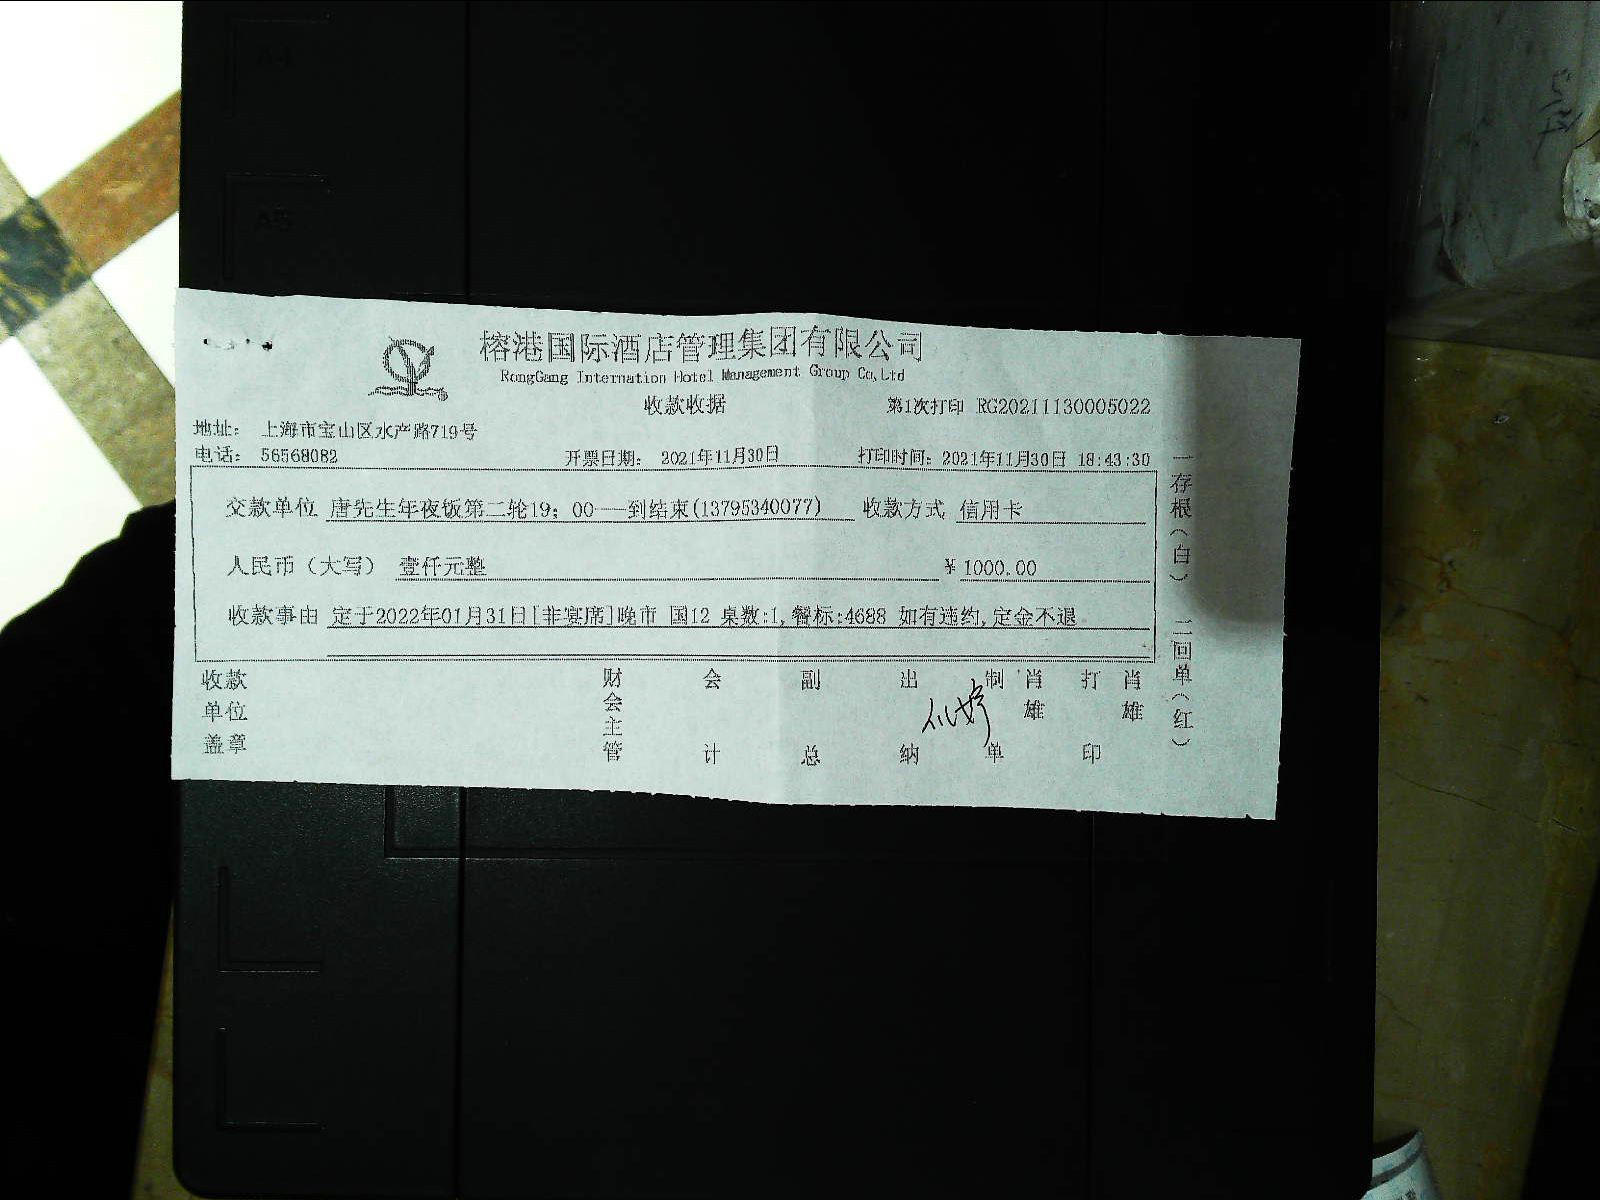 榕港国际酒店管理集团有限公司
RongGang Internation Hotel Management Group Co,Ltd
收款收据
第1次打印 RG20211130005022
地址： 上海市宝山区水产路719号
电话： 56568082 开票日期： 2021年11月30日 打印时间：2021年11月30日 18:43:30
交款单位 唐先生年夜饭第二轮19；00—到结束(13795340077) 收款方式 信用卡
人民币（大写） 壹仟元整 ¥ 1000.00
收款事由 定于2022年01月31日[非宴席]晚市 国12 桌数:1,餐标:4688 如有违约,定金不退
收款单位盖章 财会主管 会计 副总 出纳 制单 肖雄 打印 肖雄
一存根（白） 二回单（红）
A4
A5